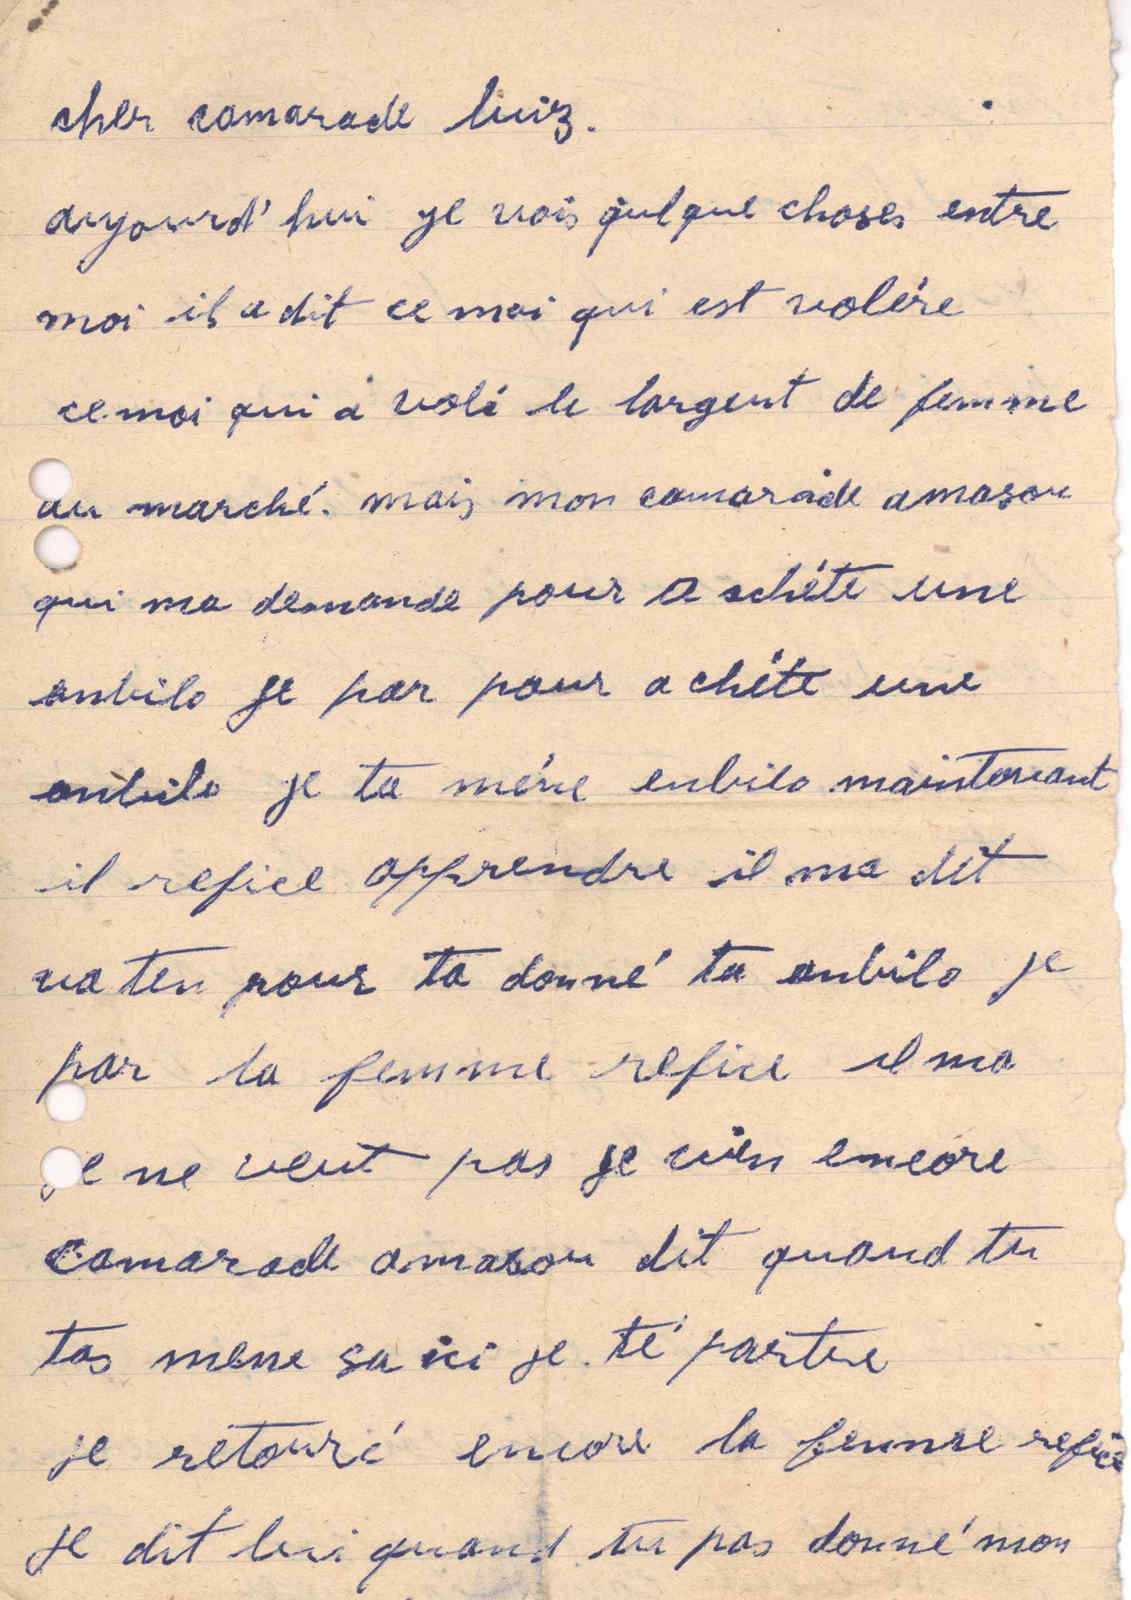 cher camarade luiz.
auyourd'hui ye vois qulque choses entre
moi il a dit ce moi qui est volére
ce moi qui a volé le largent de femme
au marché. mais mon camarade amasou
qui ma demande pour a schéte une
anbilo je par pour achéte une
anbilo je ta méne enbilo maintenant
il refice apprendre il ma dit
va ten pour ta donné ta anbilo je
par la femme refice il ma
je ne veut pas je vien encore
camarade amasou dit quand tu
tas mene sa ici je té partue
je retouré encore la femme refice
je dit lui quand tu pas donné mon